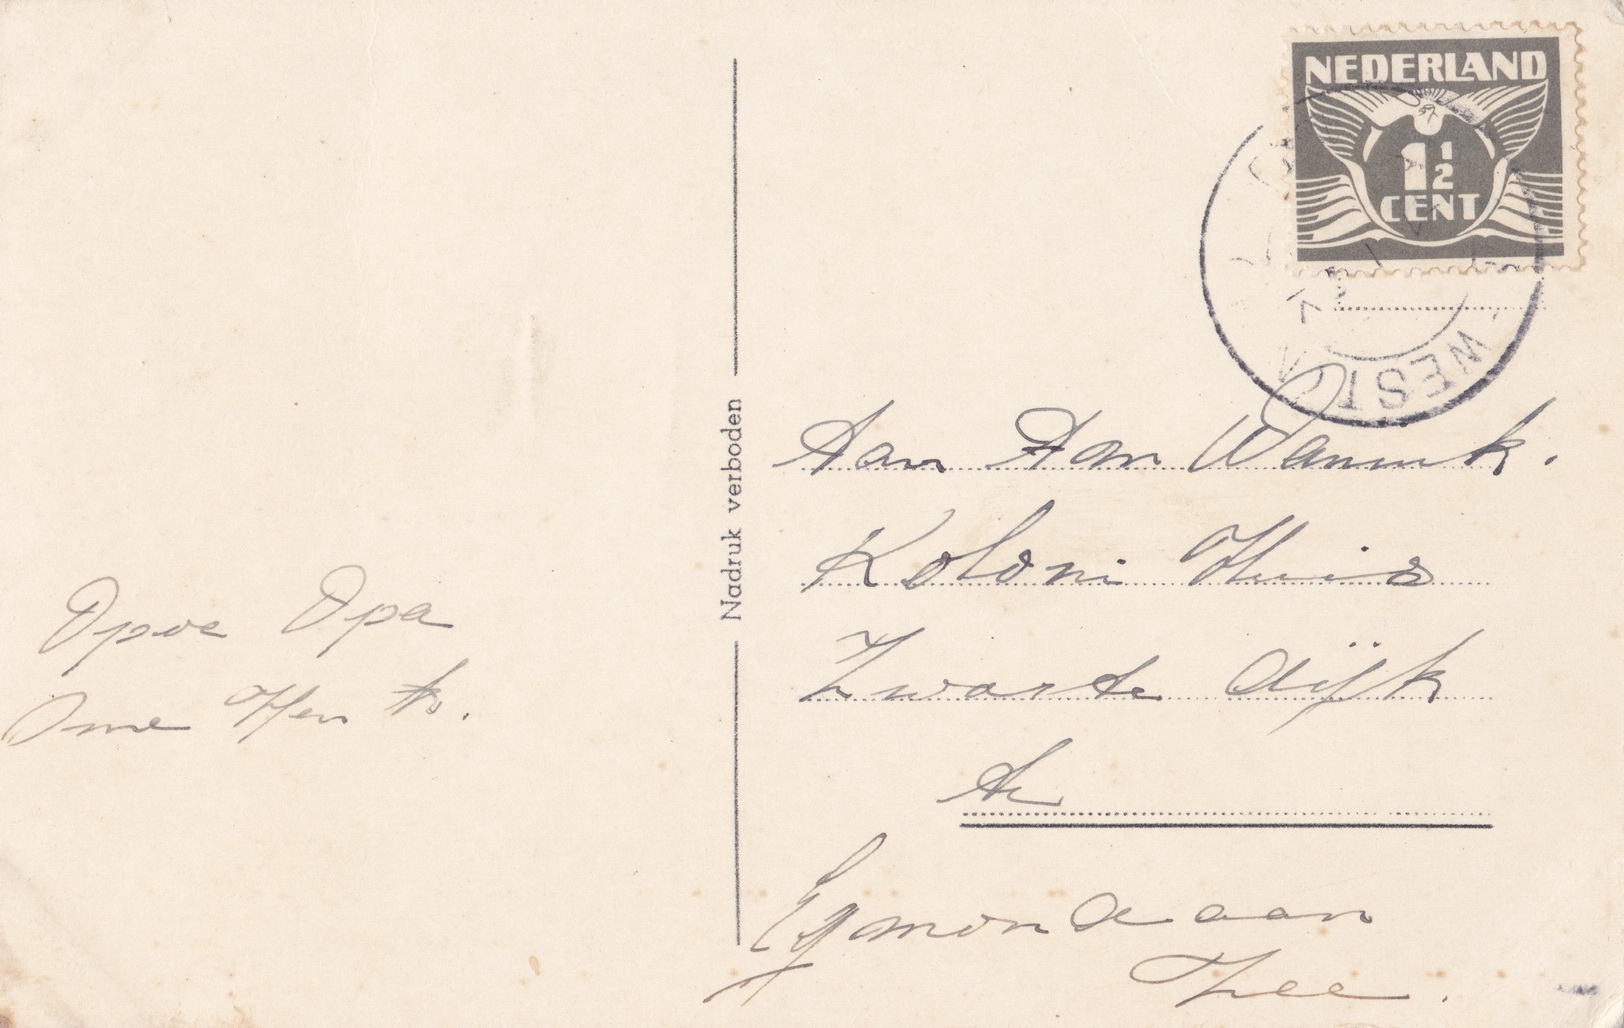 NEDERLAND
1½
CENT
WEST
Nadruk verboden
Aan Aan Wannık.
Koloni Huis
Zwarte dijk
te
Egmond aan
Zhee.
Opoe Opa
Ome Hen